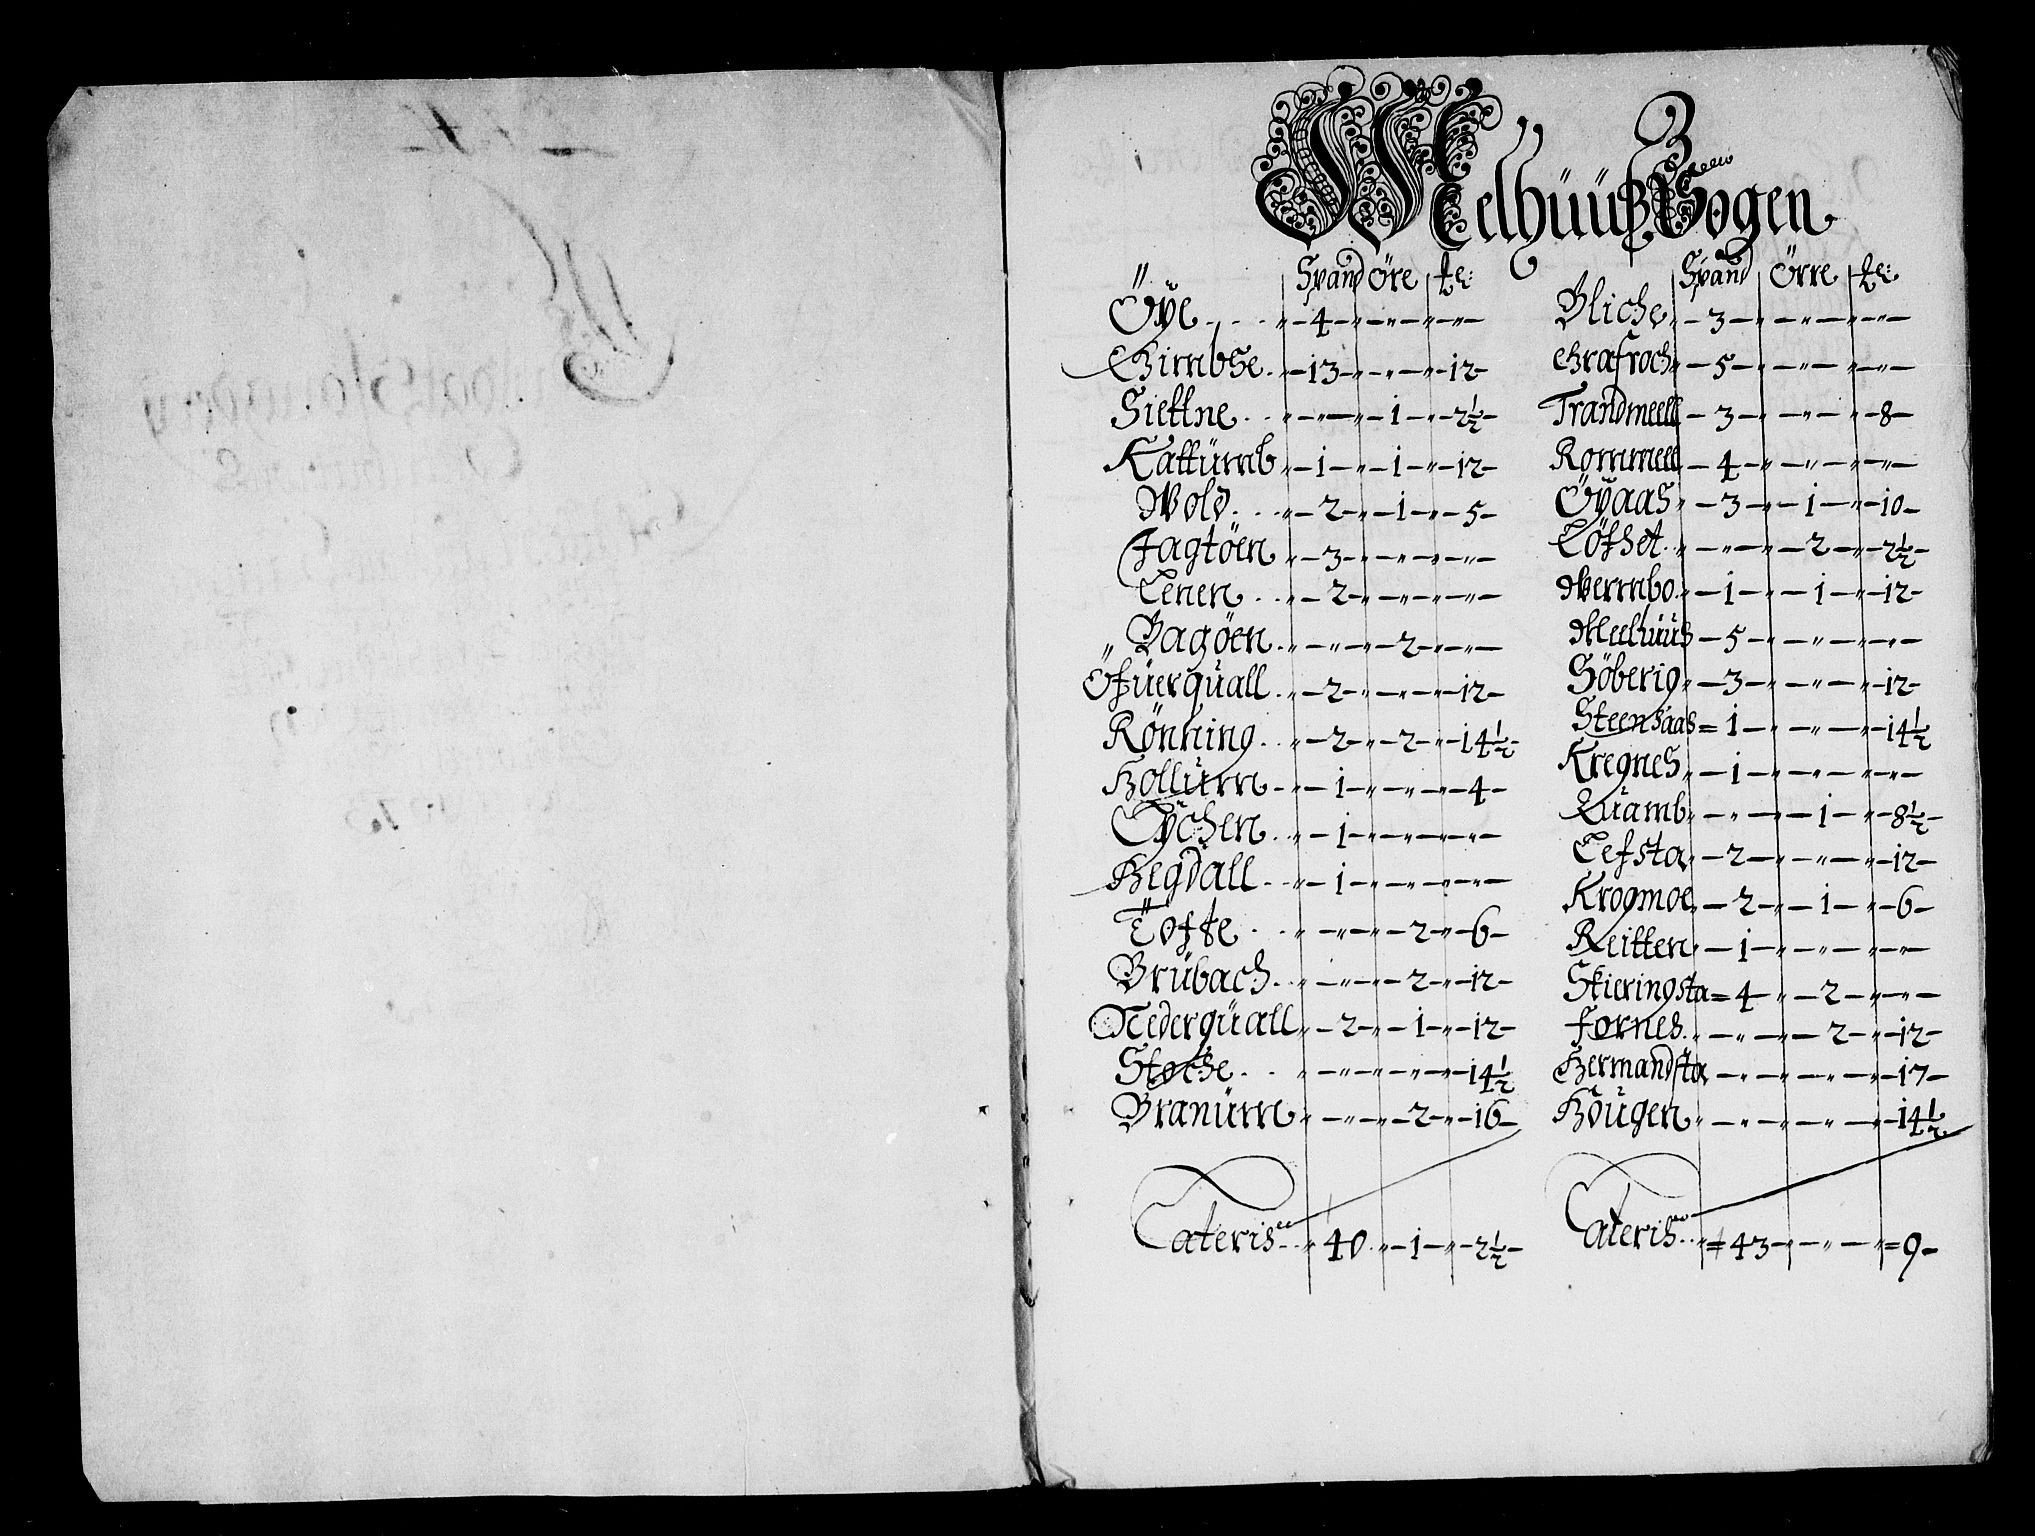 Melhüüß Sogen
Spand Öre
Öÿe - 4 - " - " -
Gimbse - 13 - " - 12 -
Siettne - " - 1 - 2½ -
Kattümb - 1 - 1 - 12 -
Wold - 2 - 1 - 5 -
Jagtöen - 3 - " - " -
Lenen - 2 - " - " -
Bagöen - " - 2 - " -
Öfüerquall - 2 - " - 12 -
Rönning - 2 - 2 - 14½ -
Hollum - 1 - " - 4 -
Lÿchen - 1 - " - " -
Hegdall - 1 - " - " -
Töfte - " - 2 - 6 -
Brübach - " - 2 - 12 -
Nederquall - 2 - 1 - 12 -
Stoche - " - " - 14½
Branüm - " - 2 - 16 -
Lateris - 40 - 1 - 2½ -
Spand Örre
Bliche - 3 - " - " -
Grafroch - 5 - " - " -
Trandmeell - 3 - " - 8 -
Rommell - 4 - " - " -
Öÿaas - 3 - 1 - 10 -
Löfset - " - 2 - 2½ -
Wermbo - 1 - 1 - 12 -
Meelhüüs - 5 - " - " -
Söberig - 3 - " - 12 -
Steensaas = 1 - " - 14½
Kregnes - 1 - " - " -
Quamb - " - 1 - 8½ -
Lefsta - 2 - " - 12 -
Krogmoe - 2 - 1 - 6 -
Reitten - 1 - " - " -
Skieringsta = 4 - 2 - " -
Fornes - " - 2 - 12 -
Hermandsta - " - " - 17 -
Höügen - " - " - 14½
Lateris = 43 - " - = 9 -